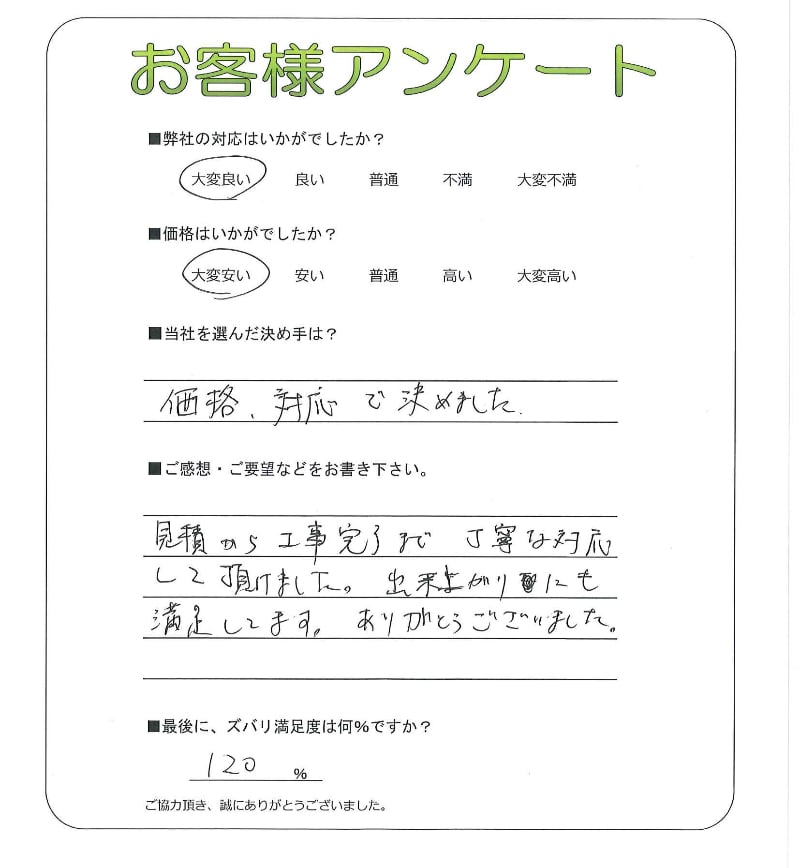 お客様アンケート
■弊社の対応はいかがでしたか？
大変良い 良い 普通 不満 大変不満
■価格はいかがでしたか？
大変安い 安い 普通 高い 大変高い
■当社を選んだ決め手は？
価格、対応で決めました.
■ご感想・ご要望などをお書き下さい。
見積から工事完了まで 丁寧な対応
して頂けました。出来上がりにも
満足してます。ありがとうございました。
■最後に、ズバリ満足度は何％ですか？
120 %
ご協力頂き、誠にありがとうございました。